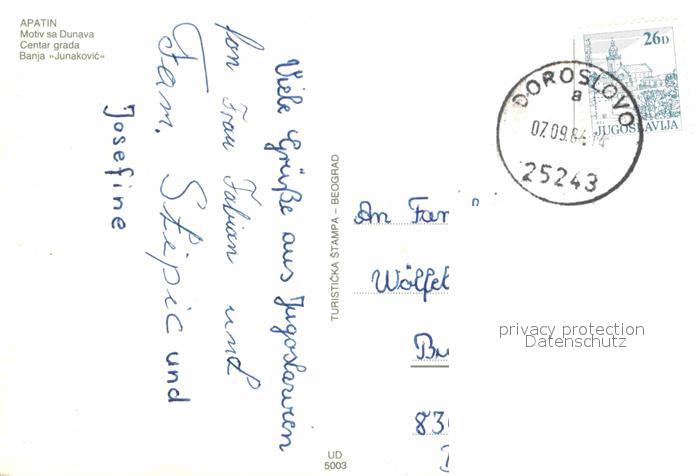 APATIN
Motiv sa Dunava
Centar grada
Banja »Junaković«
Viele Grüße aus Jugoslawien
fon Frau Fabian und
Fam. Stepic und
Josefine
TURISTIČKA ŠTAMPA – BEOGRAD
UD
5003
26D
JUGOSLAVIJA
DOROSLOVO
a
07.09.84
25243
An Fam
Wölfel
Bu
830
privacy protection
Datenschutz